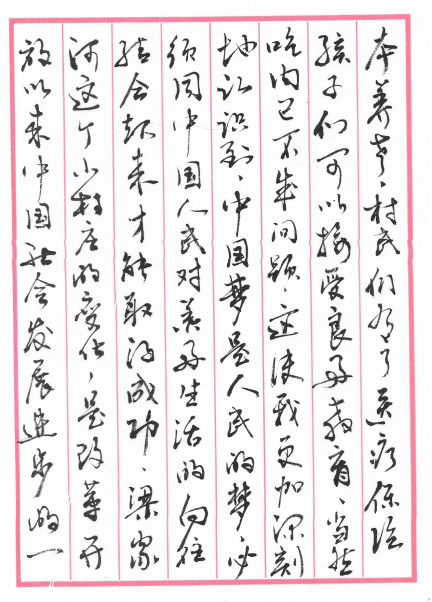 本养老，村民们有了医疗保险
孩子们可以接受良好教育，当然
吃肉已不成问题，这使我更加深刻
地认识到，中国梦是人民的梦，必
须同中国人民对美好生活的向往
结合起来才能取得成功，梁家
河这个小村庄的变化，是改革开
放以来中国社会发展进步的一